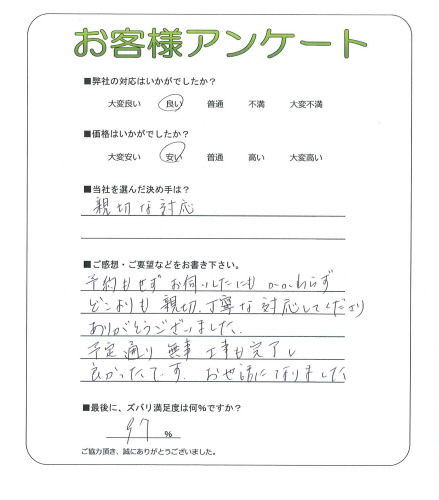 お客様アンケート
■弊社の対応はいかがでしたか?
大変良い 良い 普通 不満 大変不満
■価格はいかがでしたか?
大変安い 安い 普通 高い 大変高い
■当社を選んだ決め手は?
親切な対応
■ご感想・ご要望などをお書き下さい。
予約もせずお伺いしたにもかかわらず
どこよりも親切、丁寧な対応してくださり
ありがとうございました。
予定通り無事工事も完了し
良かったです。お世話になりました
■最後に、ズバリ満足度は何%ですか?
97 %
ご協力頂き、誠にありがとうございました。